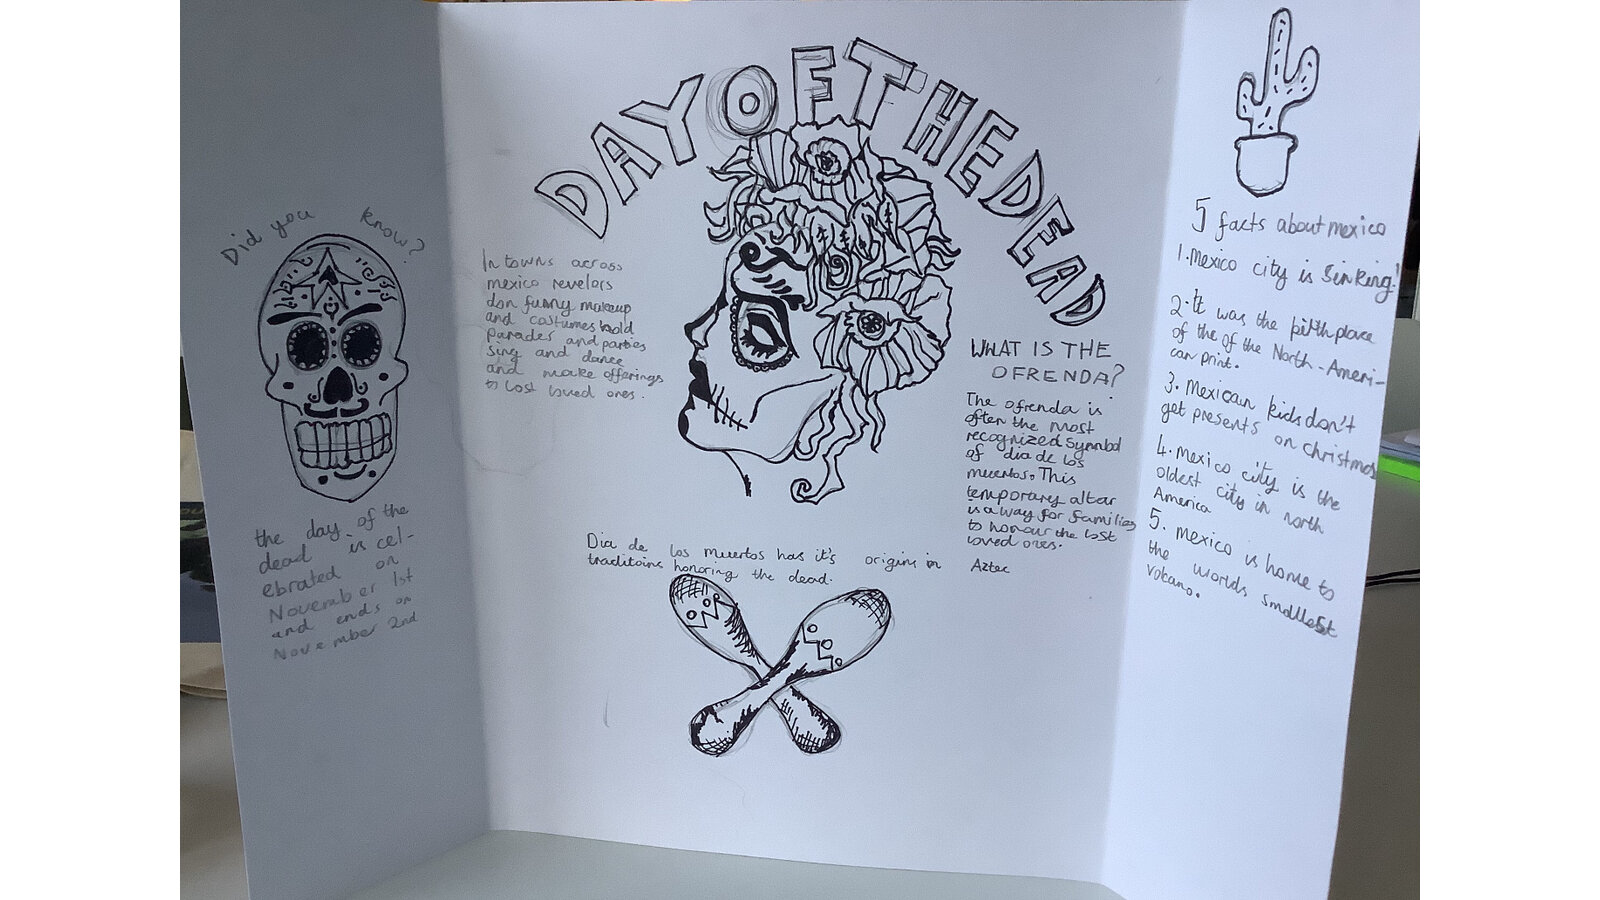 Did you know?
the day of the
dead is cel-
ebrated on
November 1st
and ends on
November 2nd
DAY OF THE DEAD
In towns across
mexico revelers
don funny makeup
and costumes hold
parades and parties
sing and dance
and make offerings
to lost loved ones.
WHAT IS THE
OFRENDA?
The ofrenda is
often the most
recognized symbol
of dia de los
muertos. This
temporary altar
is a way for families
to honour the lost
loved ones.
Dia de los muertos has it's origins in Aztec
traditoins honoring the dead.
5 facts about mexico
1. Mexico city is sinking!
2. It was the birthplace
of the of the North-Ameri-
can print.
3. Mexican kids don't
get presents on christmas
4. mexico city is the
oldest city in north
America
5. mexico is home to
the worlds smallest
volcano.